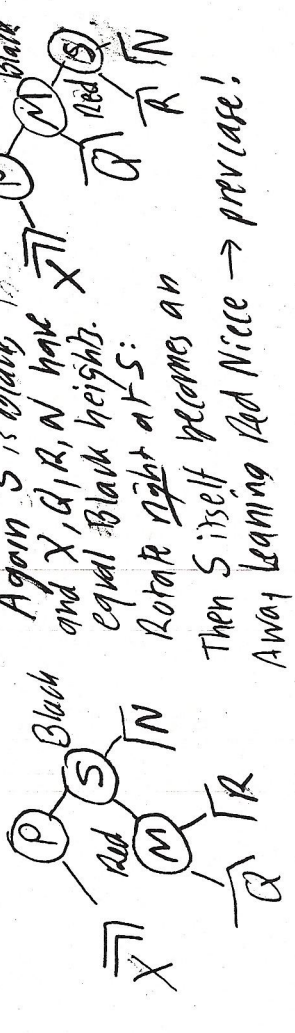 P
Black
S
Red
M
X
N
Q
R
Again S is Black,
and X, Q, R, N have
equal Black heights.
Rotate right at S:
Then S itself becomes an
Away Leaning Red Niece → prev case!
P
M
Black
S
Red
X
Q
R
N